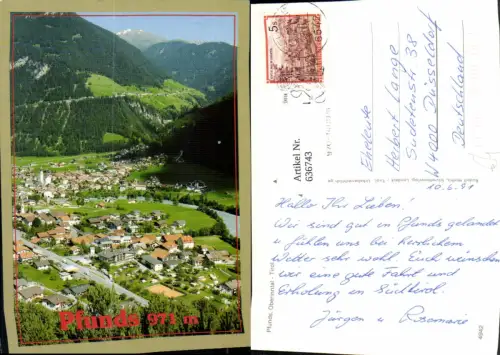 Pfunds 971 m
5 S
Artikel Nr.
636743
Pfunds, Oberinntal - Tirol
Eheleute
Herbert Lange
Südstraße 38
W 4000 Düsseldorf
Deutschland
10.6.91
Hallo Ihr Lieben!
Wir sind gut in Pfunds gelandet
u. fühlen uns bei herrlichem
Wetter sehr wohl. Euch wünschen
wir eine gute Fahrt und
Erholung in Südtirol.
Jürgen u. Rosemarie